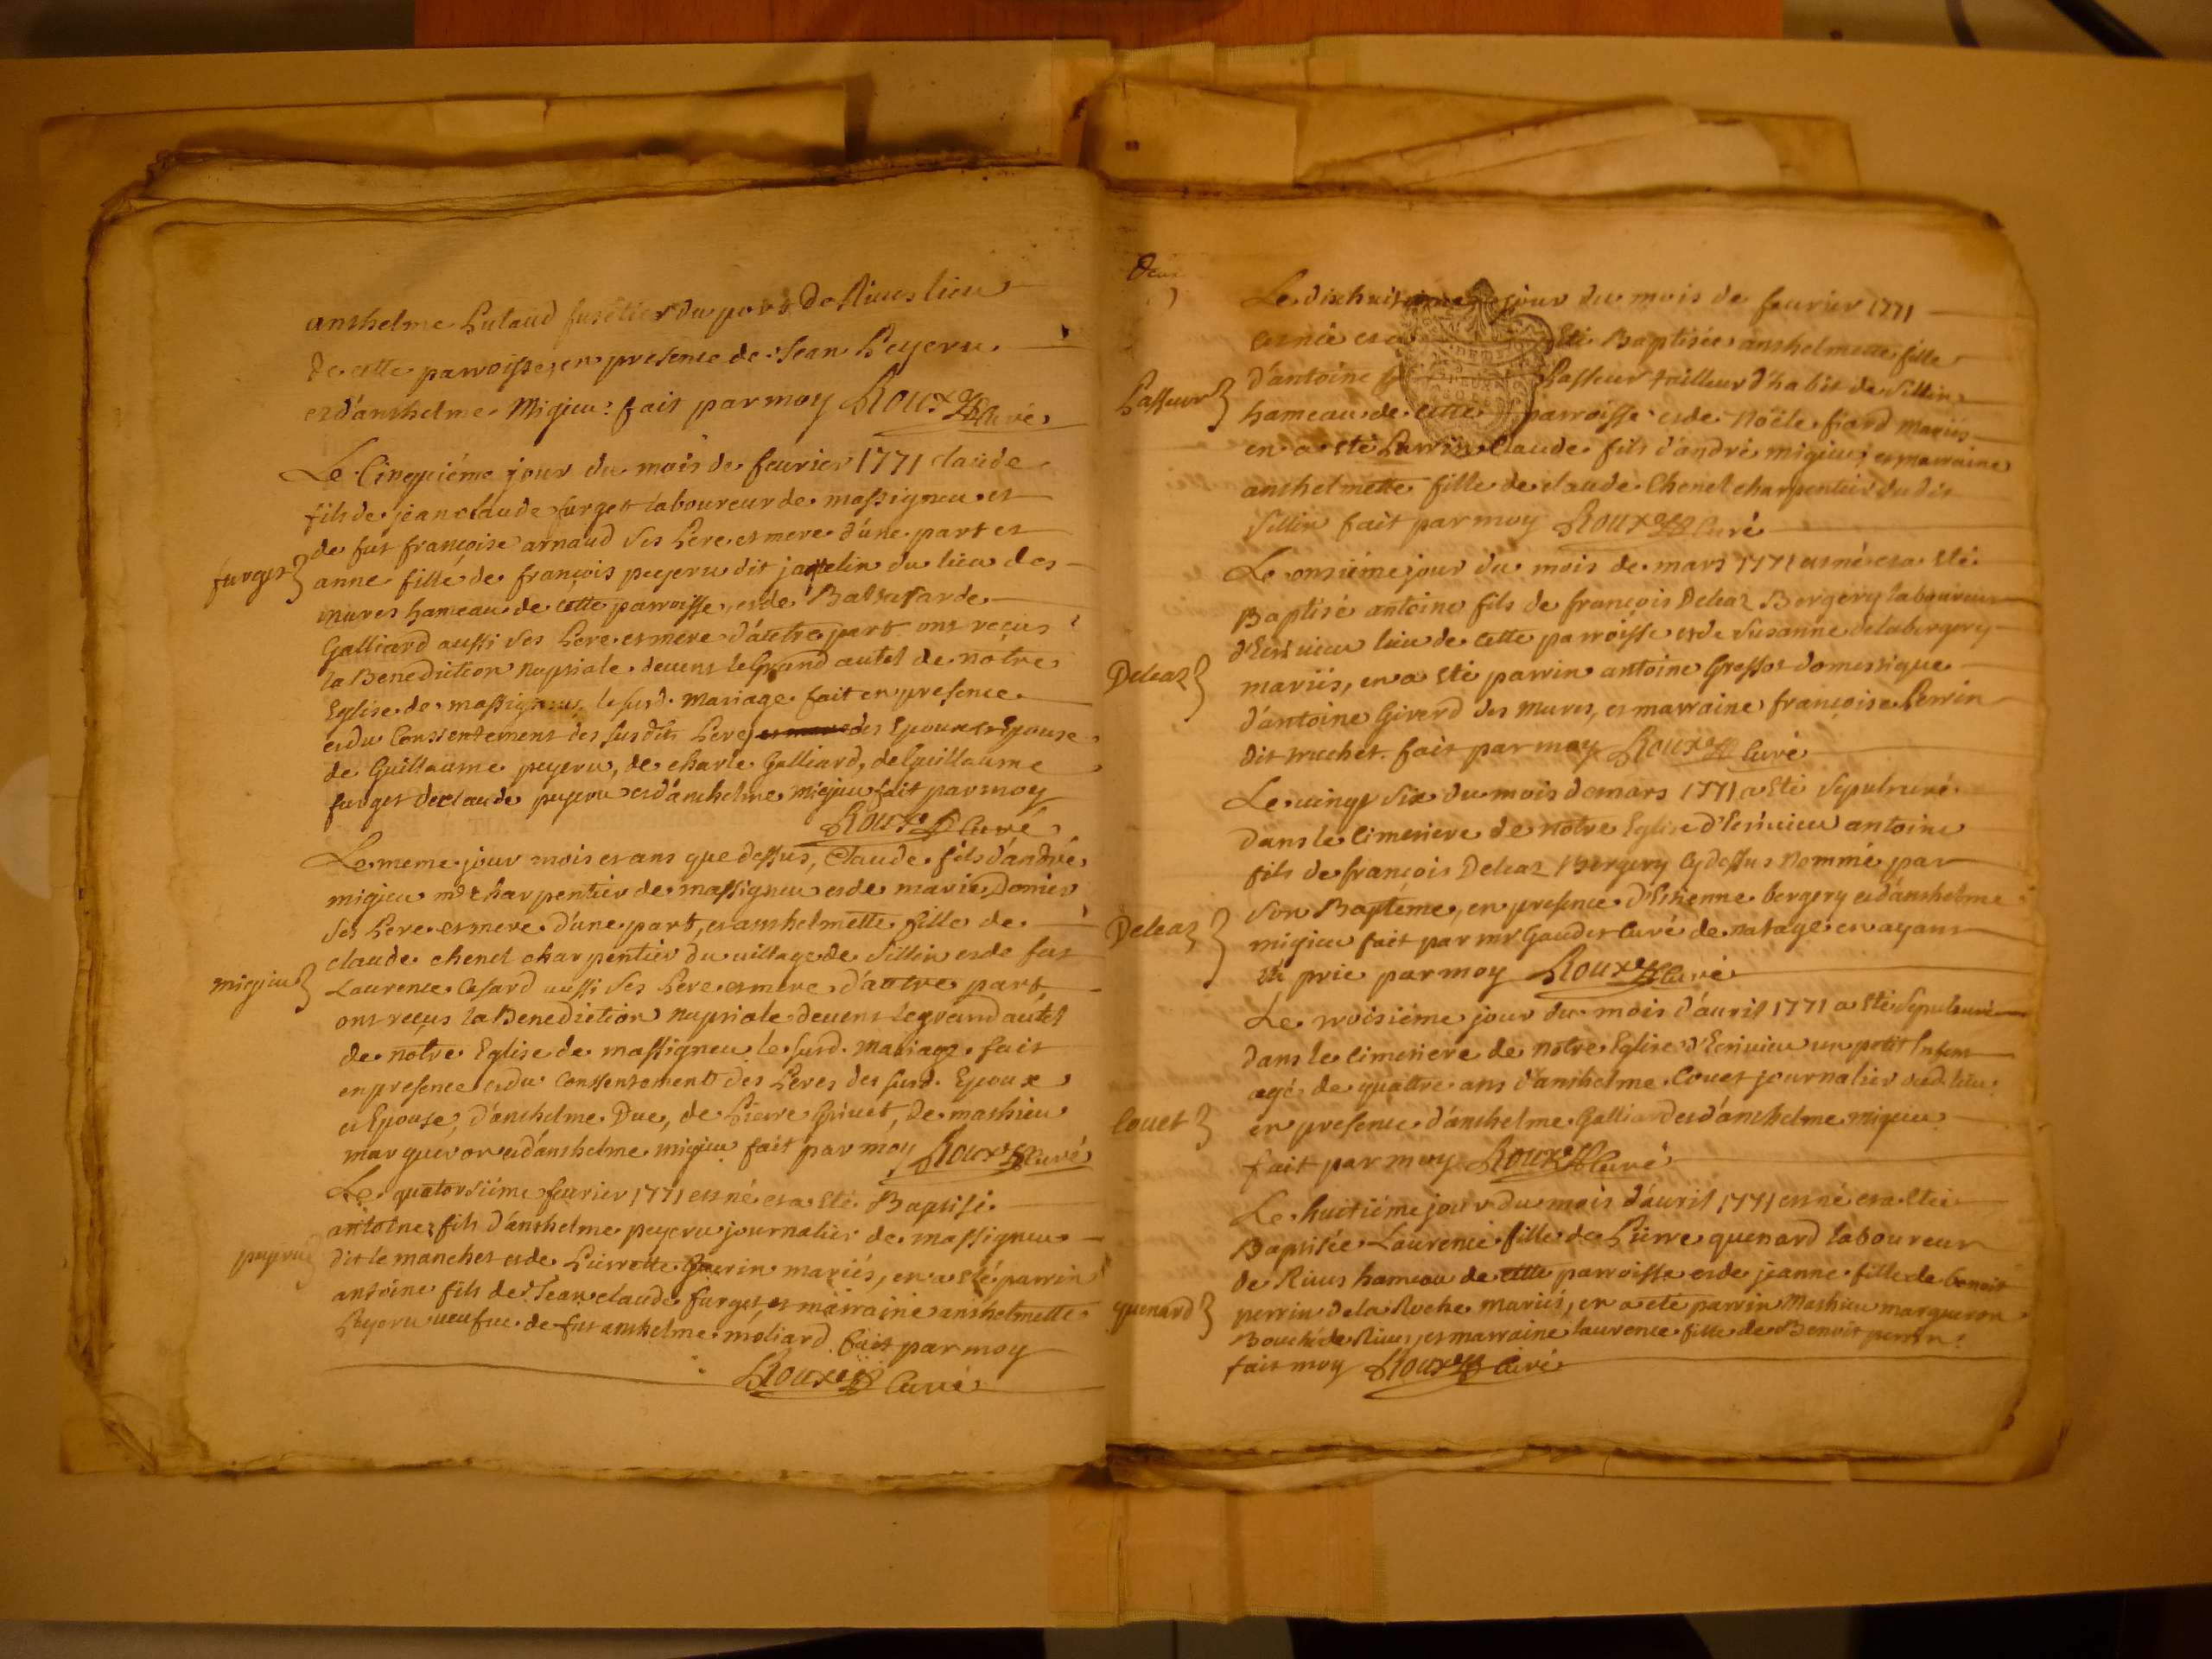 anthelme Lutaud fusetier du port De Rives lieu
De cette parroisse, en presence de Jean Peyeru
et d'anthelme Migieu: fait par moy Roux Curé
Le Cinquiéme jour du mois de feurier 1771 claude
fils de jean claude furget laboureur de massigneu et
de fut françoise arnaud ses Pere et mere d'une part et
furget
anne fille de françois peyeru dit jaquelin du lieu des
mures hameau de cette parroisse, et de Baltasarde
Galliard aussi ses Pere et mere d'autre part ont reçus
la Benediction Nuptiale devent le Grand autel de notre
Eglise de massigneu, le susd. Mariage fait en presence
et du Conssentement des susdits Peres et mere des Epoux et Epouse
de Guillaume peyeru, de charle Galliard, de Guillaume
furget de claude peyeru et d'anthelme Migieu fait par moy
Roux Curé
Le meme jour mois et ans que dessus, Claude fils d'andré
migieu md charpentier de massigneu et de marie Domier
ses Pere et mere d'une part, et anthelmette fille de
claude chenel charpentier du village de Sillin et de fut
migieu
Laurence Casard aussi ses Pere et mere d'autre part
ont reçus la Benediction nuptiale devent le grand autel
de notre Eglise de massigneu le susd. Mariage fait
en presence et du Conssentement des Peres des susd. Epoux
et Epouse, d'anthelme Duc, de Pierre Grivet, De mathieu
margueron et d'anthelme migieu fait par moy Roux Curé
Le quatorsiéme feurier 1771 est né et a été Baptisé
antoine fils d'anthelme peyeru journalier de massigneu
peyeru
dit le manchet et de Pierrette Guerin mariés, en a été parrin
antoine fils de Jean claude furget, et marraine anthelmette
Peyeru veufue de fut anthelme moliard fait par moy
Roux Curé
Le dixhuitieme jour du mois de feurier 1771
est née et a Eté Baptisée anthelmette fille
d'antoine Passeur tailleur d'habit de Sillin
Passeur
hameau de cette parroisse et de Noële fiard mariés
en a été Parrin Claude fils d'andré migieu, et marraine
anthelmette fille de claude Chenel charpentier dudit
Sillin fait par moy Roux Curé
Le onsiéme jour du mois de mars 1771 est né et a été
Baptisé antoine fils de françois Deleaz Bergery laboureur
d'Ecrivieu lieu de cette parroisse et de Susanne delabergery
Deleaz
mariés, en a été parrin antoine Grossot domestique
d'antoine Giverd des Mures, et marraine françoise Perrin
dit truchet. fait par moy Roux Curé
Le vingt Six du mois de mars 1771 a été Sepulturé
dans le Cimetiere de notre Eglise d'Ecrivieu antoine
fils de françois Deleaz Bergery Cy dessus Nommé par
son Baptéme, en presence d'Etienne bergery et d'anthelme
Deleaz
migieu fait par mr Gaudet Curé de natage en ayant
été prié par moy Roux Curé
Le troisiéme jour du mois d'auril 1771 a été Sepulturé
dans le Cimetiere de notre Eglise d'Ecrivieu un petit Enfent
agé de quattre ans d'anthelme Couet journalier dud. lieu
Couet
en presence d'anthelme Galliard et d'anthelme Migieu
fait par moy Roux Curé
Le huitiéme jour du mois d'auril 1771 est né et a été
Baptisée Laurence fille de Pierre quenard laboureur
de Rives hameau de cette parroisse et de jeanne fille de benoit
quenard
perrin de la Ruche mariés, en a été parrin Mathieu margueron
Bouché de Rives, et marraine laurence fille de Benoit perrin
fait moy Roux Curé